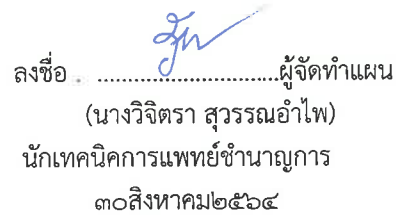 ลงชื่อ ................................ผู้จัดทำแผน
(นางวิจิตรา สุวรรณอำไพ)
นักเทคนิคการแพทย์ชำนาญการ
๓๐สิงหาคม๒๕๖๔